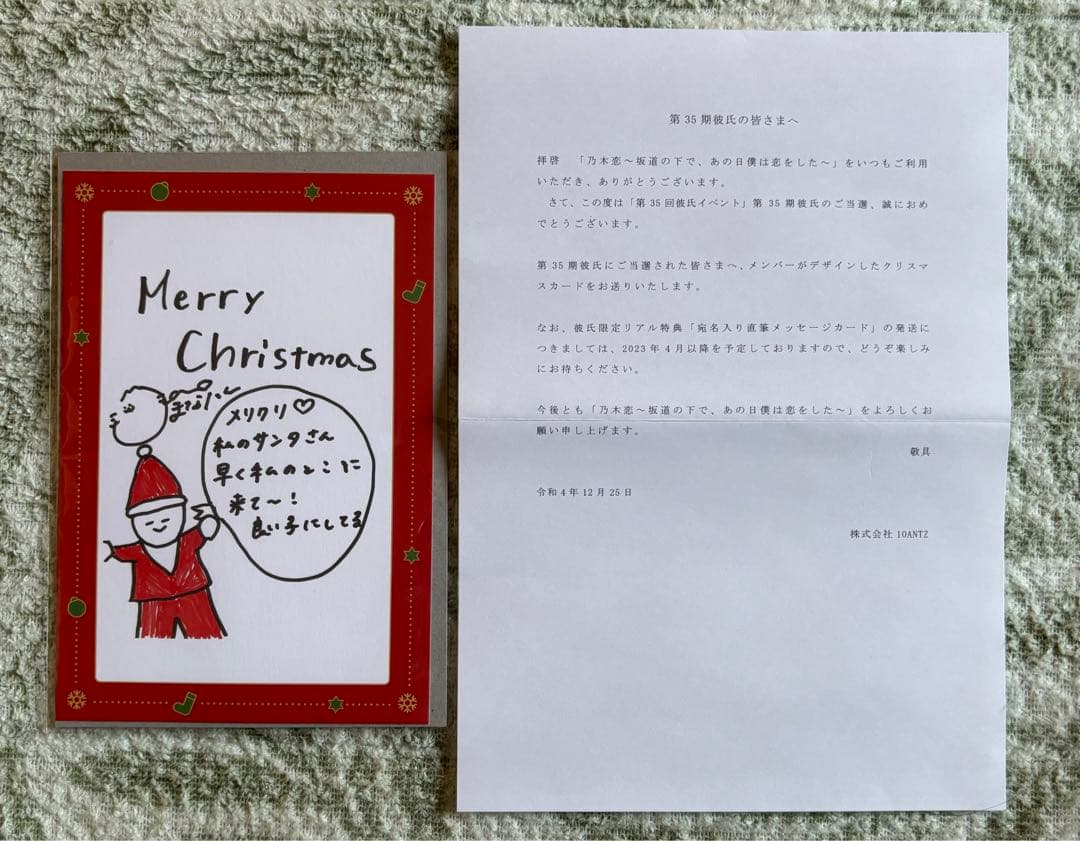 Merry
Christmas
まなたん
メリクリ♡
私のサンタさん
早く私のとこに
来て〜！
良い子にしてる
第35期彼氏の皆さまへ
拝啓　「乃木恋〜坂道の下で、あの日僕は恋をした〜」をいつもご利用
いただき、ありがとうございます。
さて、この度は「第35回彼氏イベント」第35期彼氏のご当選、誠におめ
でとうございます。
第35期彼氏にご当選された皆さまへ、メンバーがデザインしたクリスマ
スカードをお送りいたします。
なお、彼氏限定リアル特典「宛名入り直筆メッセージカード」の発送に
つきましては、2023年4月以降を予定しておりますので、どうぞ楽しみ
にお待ちください。
今後とも「乃木恋〜坂道の下で、あの日僕は恋をした〜」をよろしくお
願い申し上げます。
敬具
令和4年12月25日
株式会社10ANTZ